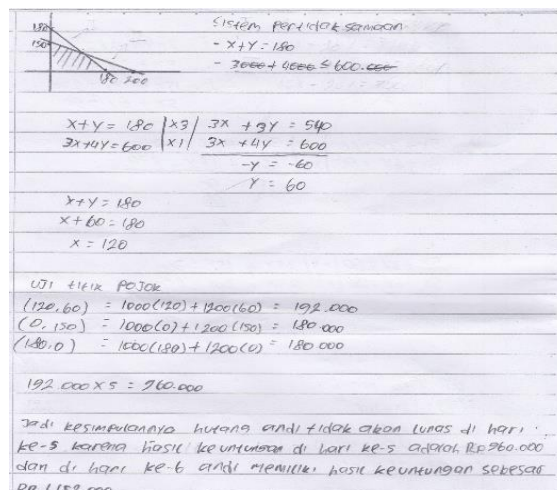 Sistem pertidak samaan
180
- x+y = 180
150
- 3000 + 4000 ≤ 600.000
180 200
x+y = 180 | x3 | 3x + 3y = 540
3x+4y = 600 | x1 | 3x + 4y = 600
-y = -60
y = 60
x+y = 180
x+60 = 180
x = 120
UJI titik POJOK
(120,60) = 1000(120)+1200(60) = 192.000
(0,150) = 1000(0)+1200(150) = 180.000
(180,0) = 1000(180)+1200(0) = 180.000
192.000 x 5 = 960.000
Jadi kesimpulannya hutang andi tidak akan lunas di hari
ke-5 karena hasil keuntungan di hari ke-5 adalah Rp 960.000
dan di hari ke-6 andi memiliki hasil keuntungan sebesar
Rp 1.152.000